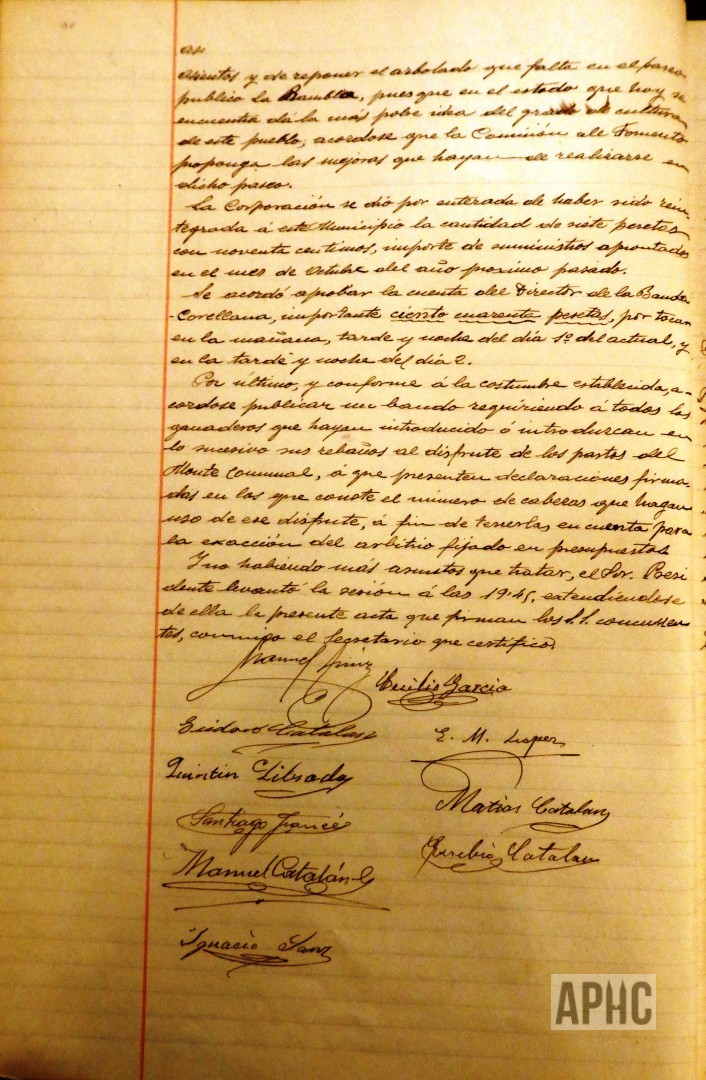 asientos y de reponer el arbolado que falta en el paseo
publico la Rambla, pues que en el estado que hoy se
encuentra dá la más pobre idea del grado de cultura
de este pueblo; acordose que la Comisión de Fomento
proponga las mejoras que hayan de realizarse en
dicho paseo.
La Corporación se dió por enterada de haber sido rein-
tegrada á este Municipio la cantidad de siete pesetas
con noventa centimos, importe de suministros aprontados
en el mes de Octubre del año proximo pasado.
Se acordó aprobar la cuenta del Director de la Banda
Corellana, importante ciento cuarenta pesetas, por tocar
en la mañana, tarde y noche del día 1º. del actual, y
en la tarde y noche del día 2.
Por último, y conforme á la costumbre establecida, a-
cordose publicar un bando requiriendo á todos los
ganaderos que hayan introducido ó introduzcan en
lo sucesivo sus rebaños al disfrute de los pastos del
Monte Comunal, á que presenten declaraciones firma-
das en las que conste el número de cabezas que hagan
uso de ese disfrute, á fin de tenerlas en cuenta para
la exacción del arbitrio fijado en presupuestos.
Y no habiendo más asuntos que tratar, el Sor. Presi
dente levantó la sesión á las 19'45, extendiendose
de ella la presente acta que firman los S.S. concurren
tes, conmigo el Secretario que certifico.
Manuel
Cecilio Garcia
Catalan
E. M. Lopez
Quintin Librada
Matias Catalan
Santiago Francés
Eusebio Catalan
Manuel Catalán
Ignacio Sanz
APHC